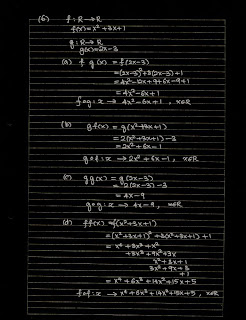 (6) f : R→R
f(x)=x²+3x+1
g : R→R
g(x)=2x-3
(a) f g(x) = f(2x-3)
=(2x-3)²+3(2x-3)+1
=4x²-12x+9+6x-9+1
=4x²-6x+1
fog : x → 4x²-6x+1, x∈R
(b) gf(x) = g(x²+3x+1)
= 2(x²+3x+1)-3
= 2x²+6x-1
gof : x → 2x²+6x-1, x∈R
(c) gg(x) = g(2x-3)
= 2(2x-3)-3
= 4x-9
gog : x → 4x-9, x∈R
(d) ff(x) = f(x²+3x+1)
=(x²+3x+1)²+3(x²+3x+1)+1
= x⁴+3x³+x²
+3x³+9x²+3x
x²+3x+1
3x²+9x+3
+1
= x⁴+6x³+14x²+15x+5
fof : x → x⁴+6x³+14x²+15x+5, x∈R